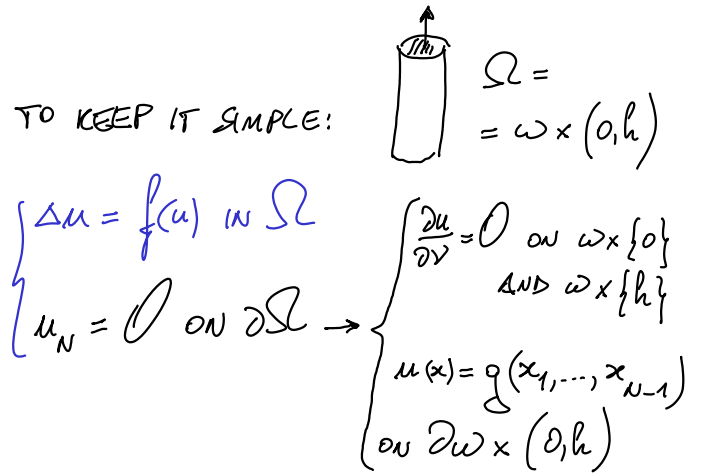 Ω =
= ω × (0,h)
TO KEEP IT SIMPLE:
Δu = f(u) IN Ω
u_N = 0 ON ∂Ω →
∂u/∂ν = 0 ON ω×{0}
AND ω×{h}
u(x) = g(x_1,...,x_{N-1})
ON ∂ω × (0,h)